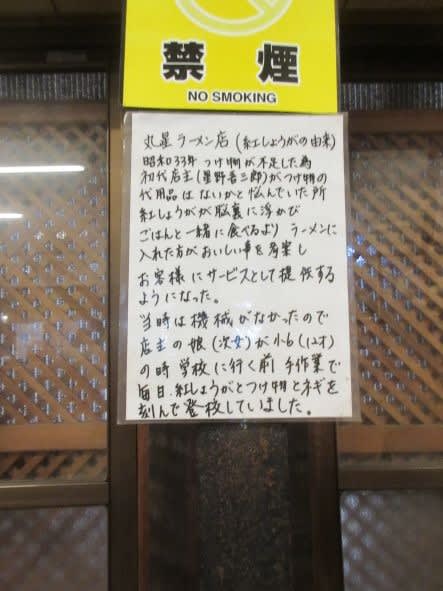 禁煙
NO SMOKING
丸星ラーメン店(紅しょうがの由来)
昭和33年 つけ物が不足した為
初代店主(星野吾三郎)がつけ物の
代用品はないかと悩んでいた所
紅しょうがが脳裏に浮かび
ごはんと一緒に食べるより ラーメンに
入れた方がおいしい事を考案し
お客様にサービスとして提供する
ようになった。
当時は機械がなかったので
店主の娘(次女)が小6(12才)
の時学校に行く前 手作業で
毎日.紅しょうがとつけ物とネギを
刻んで登校していました。